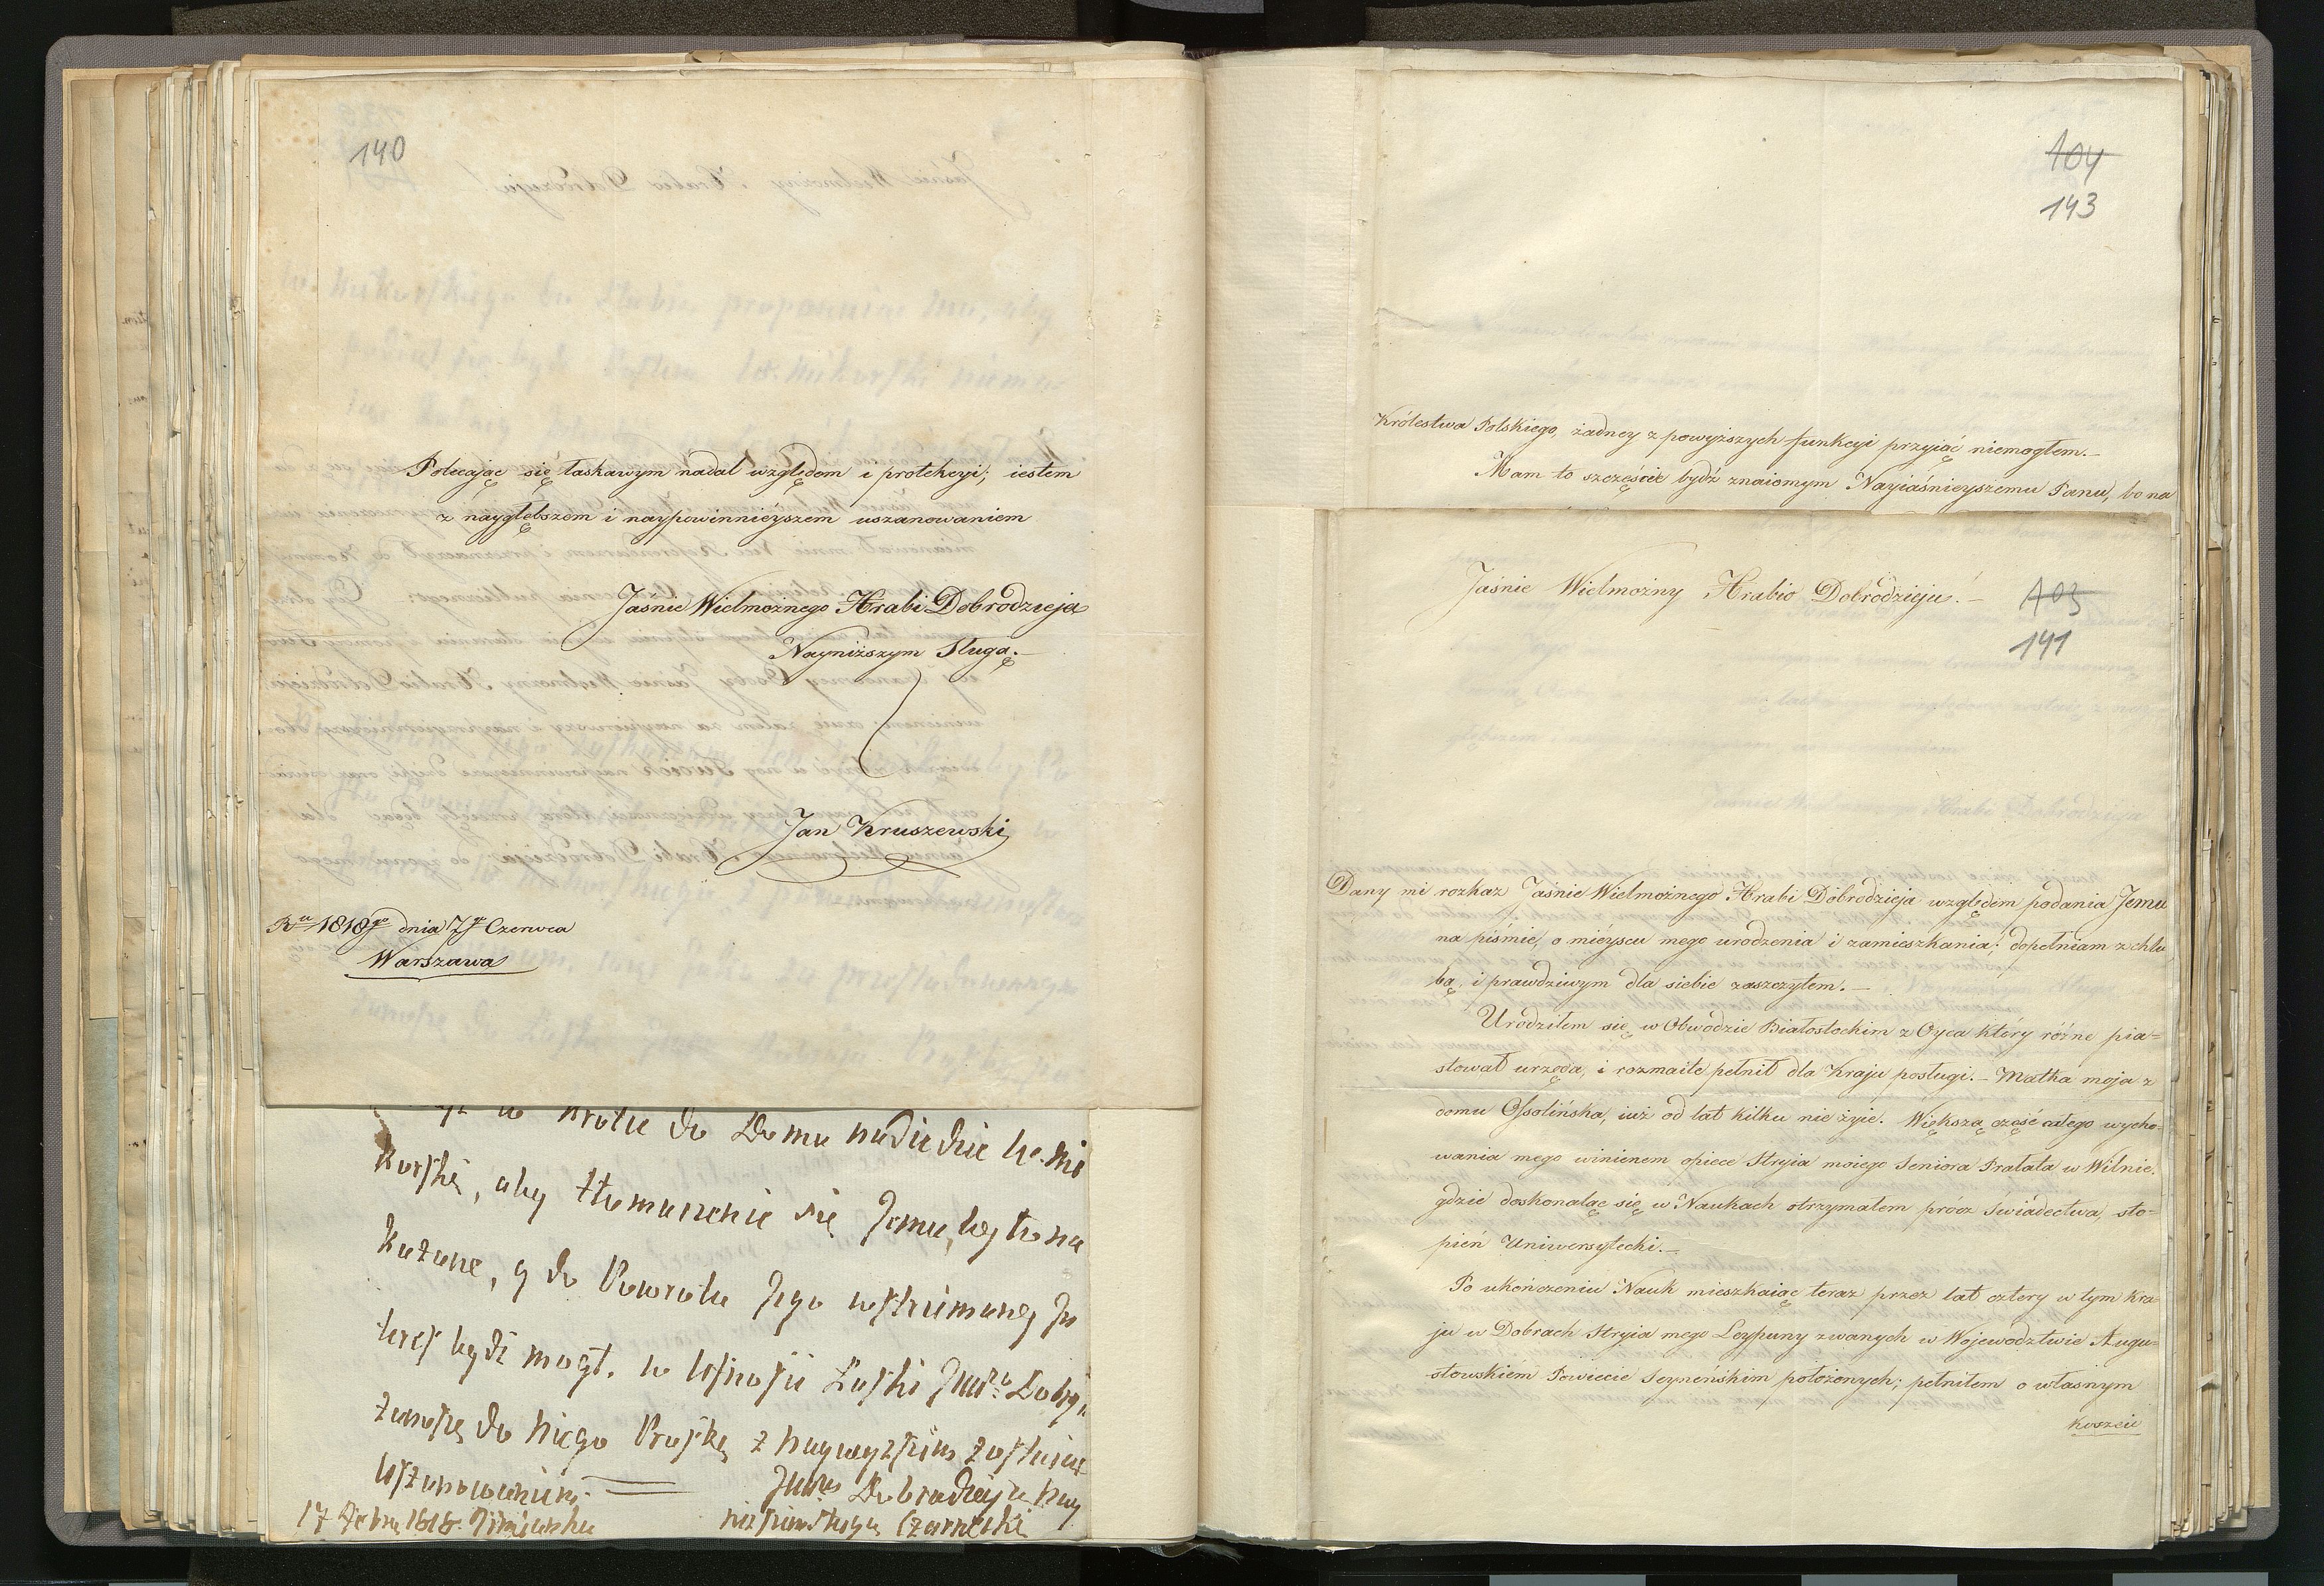 140
Polecając się łaskawym nadal względom i protekcyi; iestem
z naygłębszem i naypowinnieyszem uszanowaniem
Jaśnie Wielmożnego Hrabi Dobrodzieja
Nayniższym Sługą.
Jan Kruszewski
Ru 1818go dnia 7go Czerwca
Warszawa
w krotce do Domu nadiedzie
kurski, aby tłomaczenie się Jemu, było na
kazane, y do Powrotu Jego wstrzimaney
być mogł. w
do niego Proźbę z naywyzszim zostaiąc
Uszanowanim. Dobrodzieja nay
17 1818. niższim sługą Czarnecki
104
143
Królestwa Polskiego, żadney z powyższych funkcyi przyiąć niemogłem.–
Mam to szczęście bydź znaiomym Nayiaśnieyszemu Panu, bo na
Jaśnie Wielmożny Hrabio Dobrodzieju!–
103
141
Dany mi rozkaz Jaśnie Wielmożnego Hrabi Dobrodzieja względem podania Jemu
na piśmie, o mieyscu mego urodzenia i zamieszkania; dopełniam z chlu
bą, i prawdziwym dla siebie zaszczytem.–
Urodziłem się w Obwodzie Białostockim z Oyca który różne pia=
stował urzęda, i rozmaite pełnił dla Kraju posługi.– Matka moja z
domu Ossolińska, iuż od lat kilku nie żyie. Większą część całego wycho=
wania mego winienem opiece Stryia moiego Seniora Prałata w Wilnie.
gdzie doskonaląc się w Naukach otrzymałem prócz świadectwa, sto=
pień Uniwersytecki.–
Po ukończeniu Nauk mieszkaiąc teraz przez lat cztery w tym Kra=
ju w Dobrach Stryia mego Leypuny zwanych w Wojewodztwie Augu=
stowskiém Powiecie Seyneńskim położonych; pełniłem o własnym
koszcie